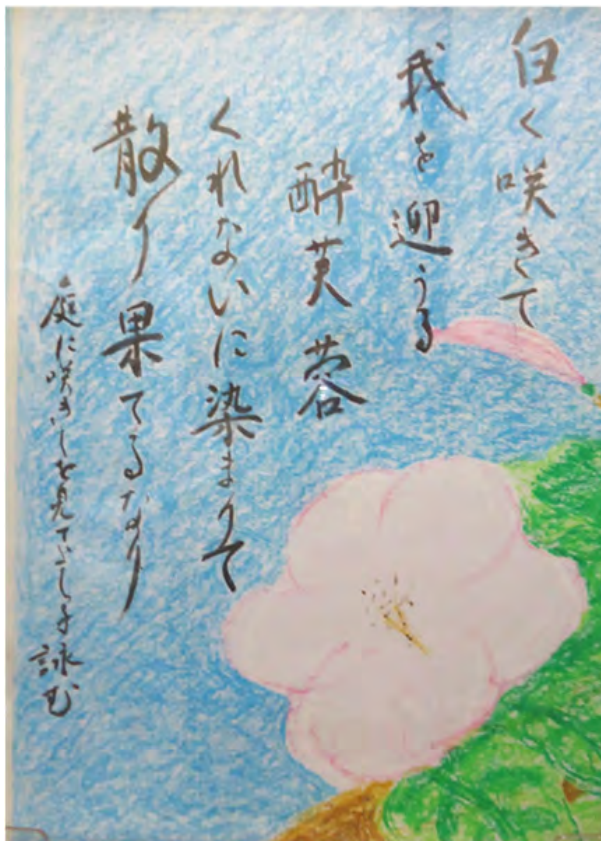 白く咲きて
我を迎うる
酔芙蓉
くれないに染まりて
散り果てるなり
庭に咲きしを見て よし子 詠む